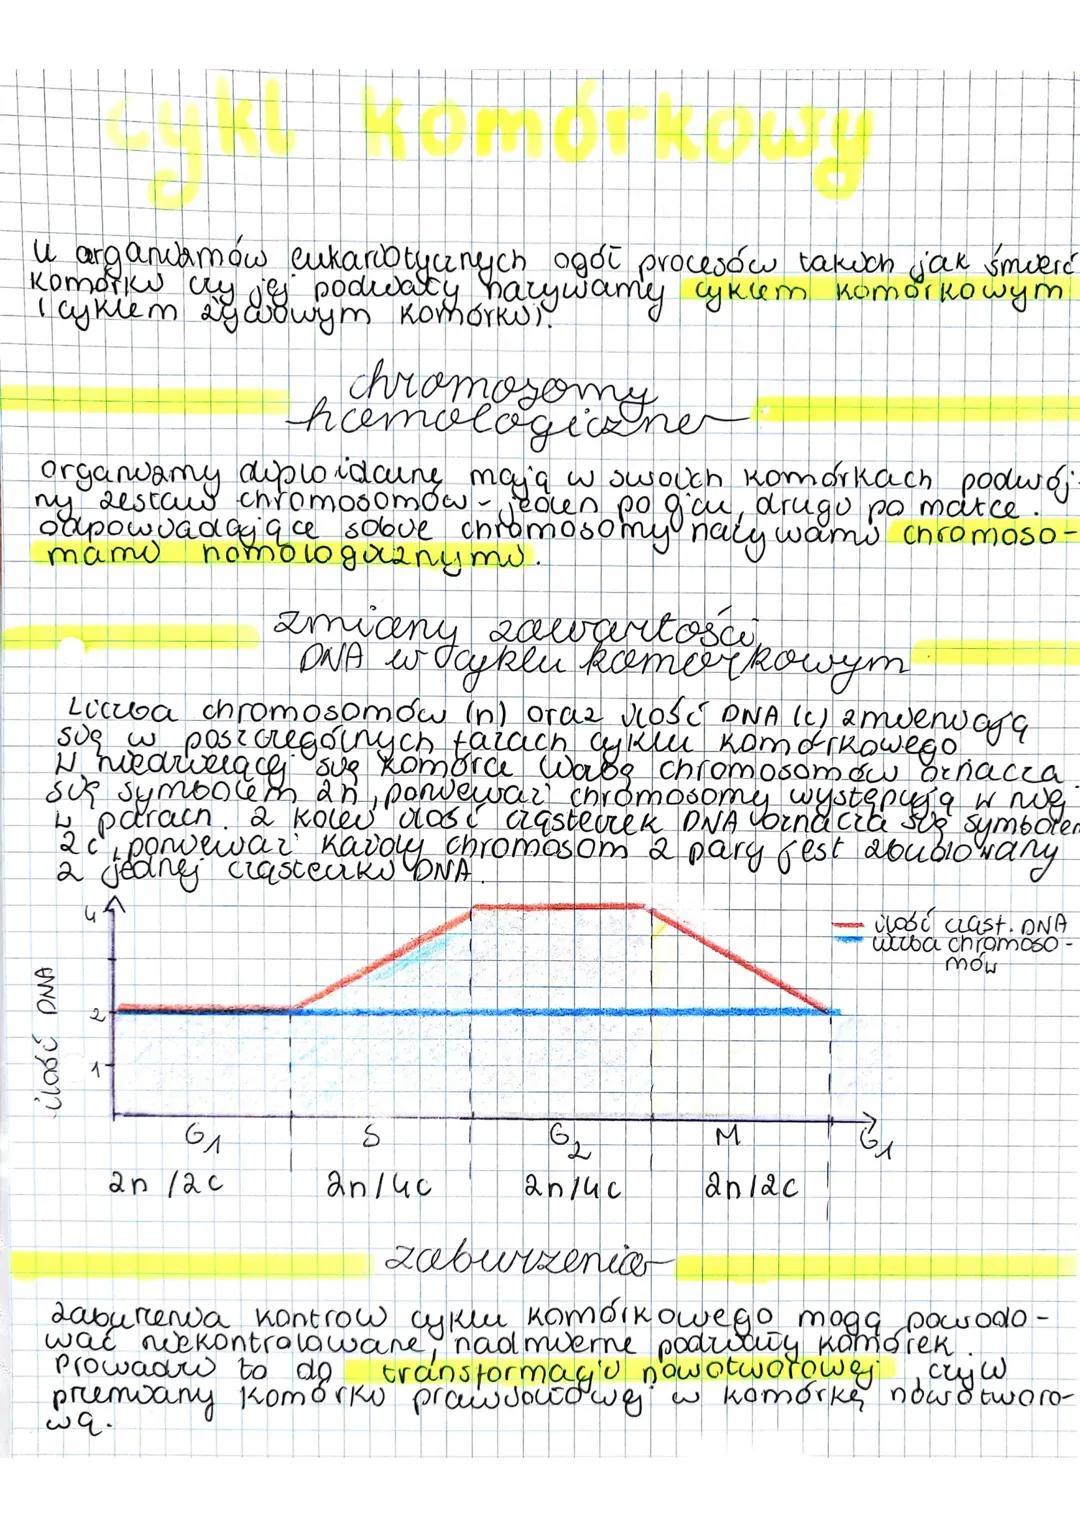 cykl komórkowy
u organizmów eukariotycznych ogół procesów takich jak śmierć
komórki czy jej podziały nazywamy cyklem komórkowym
(cyklem życiowym komórki).
chromosomy
homologiczne
organizmy diploidalne mają w swoich komórkach podwój-
ny zestaw chromosomów - jeden po ojcu, drugi po matce.
odpowiadające sobie chromosomy nazywamy chromoso-
mami homologicznymi.
zmiany zawartości
DNA w cyklu komórkowym
Liczba chromosomów (n) oraz ilość DNA (c) zmieniają
się w poszczególnych fazach cyklu komórkowego
W niedzielącej się komórce liczbę chromosomów oznacza
się symbolem 2n, ponieważ chromosomy występują w niej
w parach. Z kolei ilość cząsteczek DNA oznacza się symbolem
2c, ponieważ każdy chromosom z pary jest zbudowany
z jednej cząsteczki DNA.
4
ilość cząst. DNA
liczba chromoso-
mów
ilość DNA
2
1
G1 S G2 M G1
2n/2c 2n/4c 2n/4c 2n/2c
zaburzenia
zaburzenia kontroli cyklu komórkowego mogą powodo-
wać niekontrolowane, nadmierne podziały komórek.
Prowadzi to do transformacji nowotworowej, czyli
przemiany komórki prawidłowej w komórkę nowotworo-
wą.